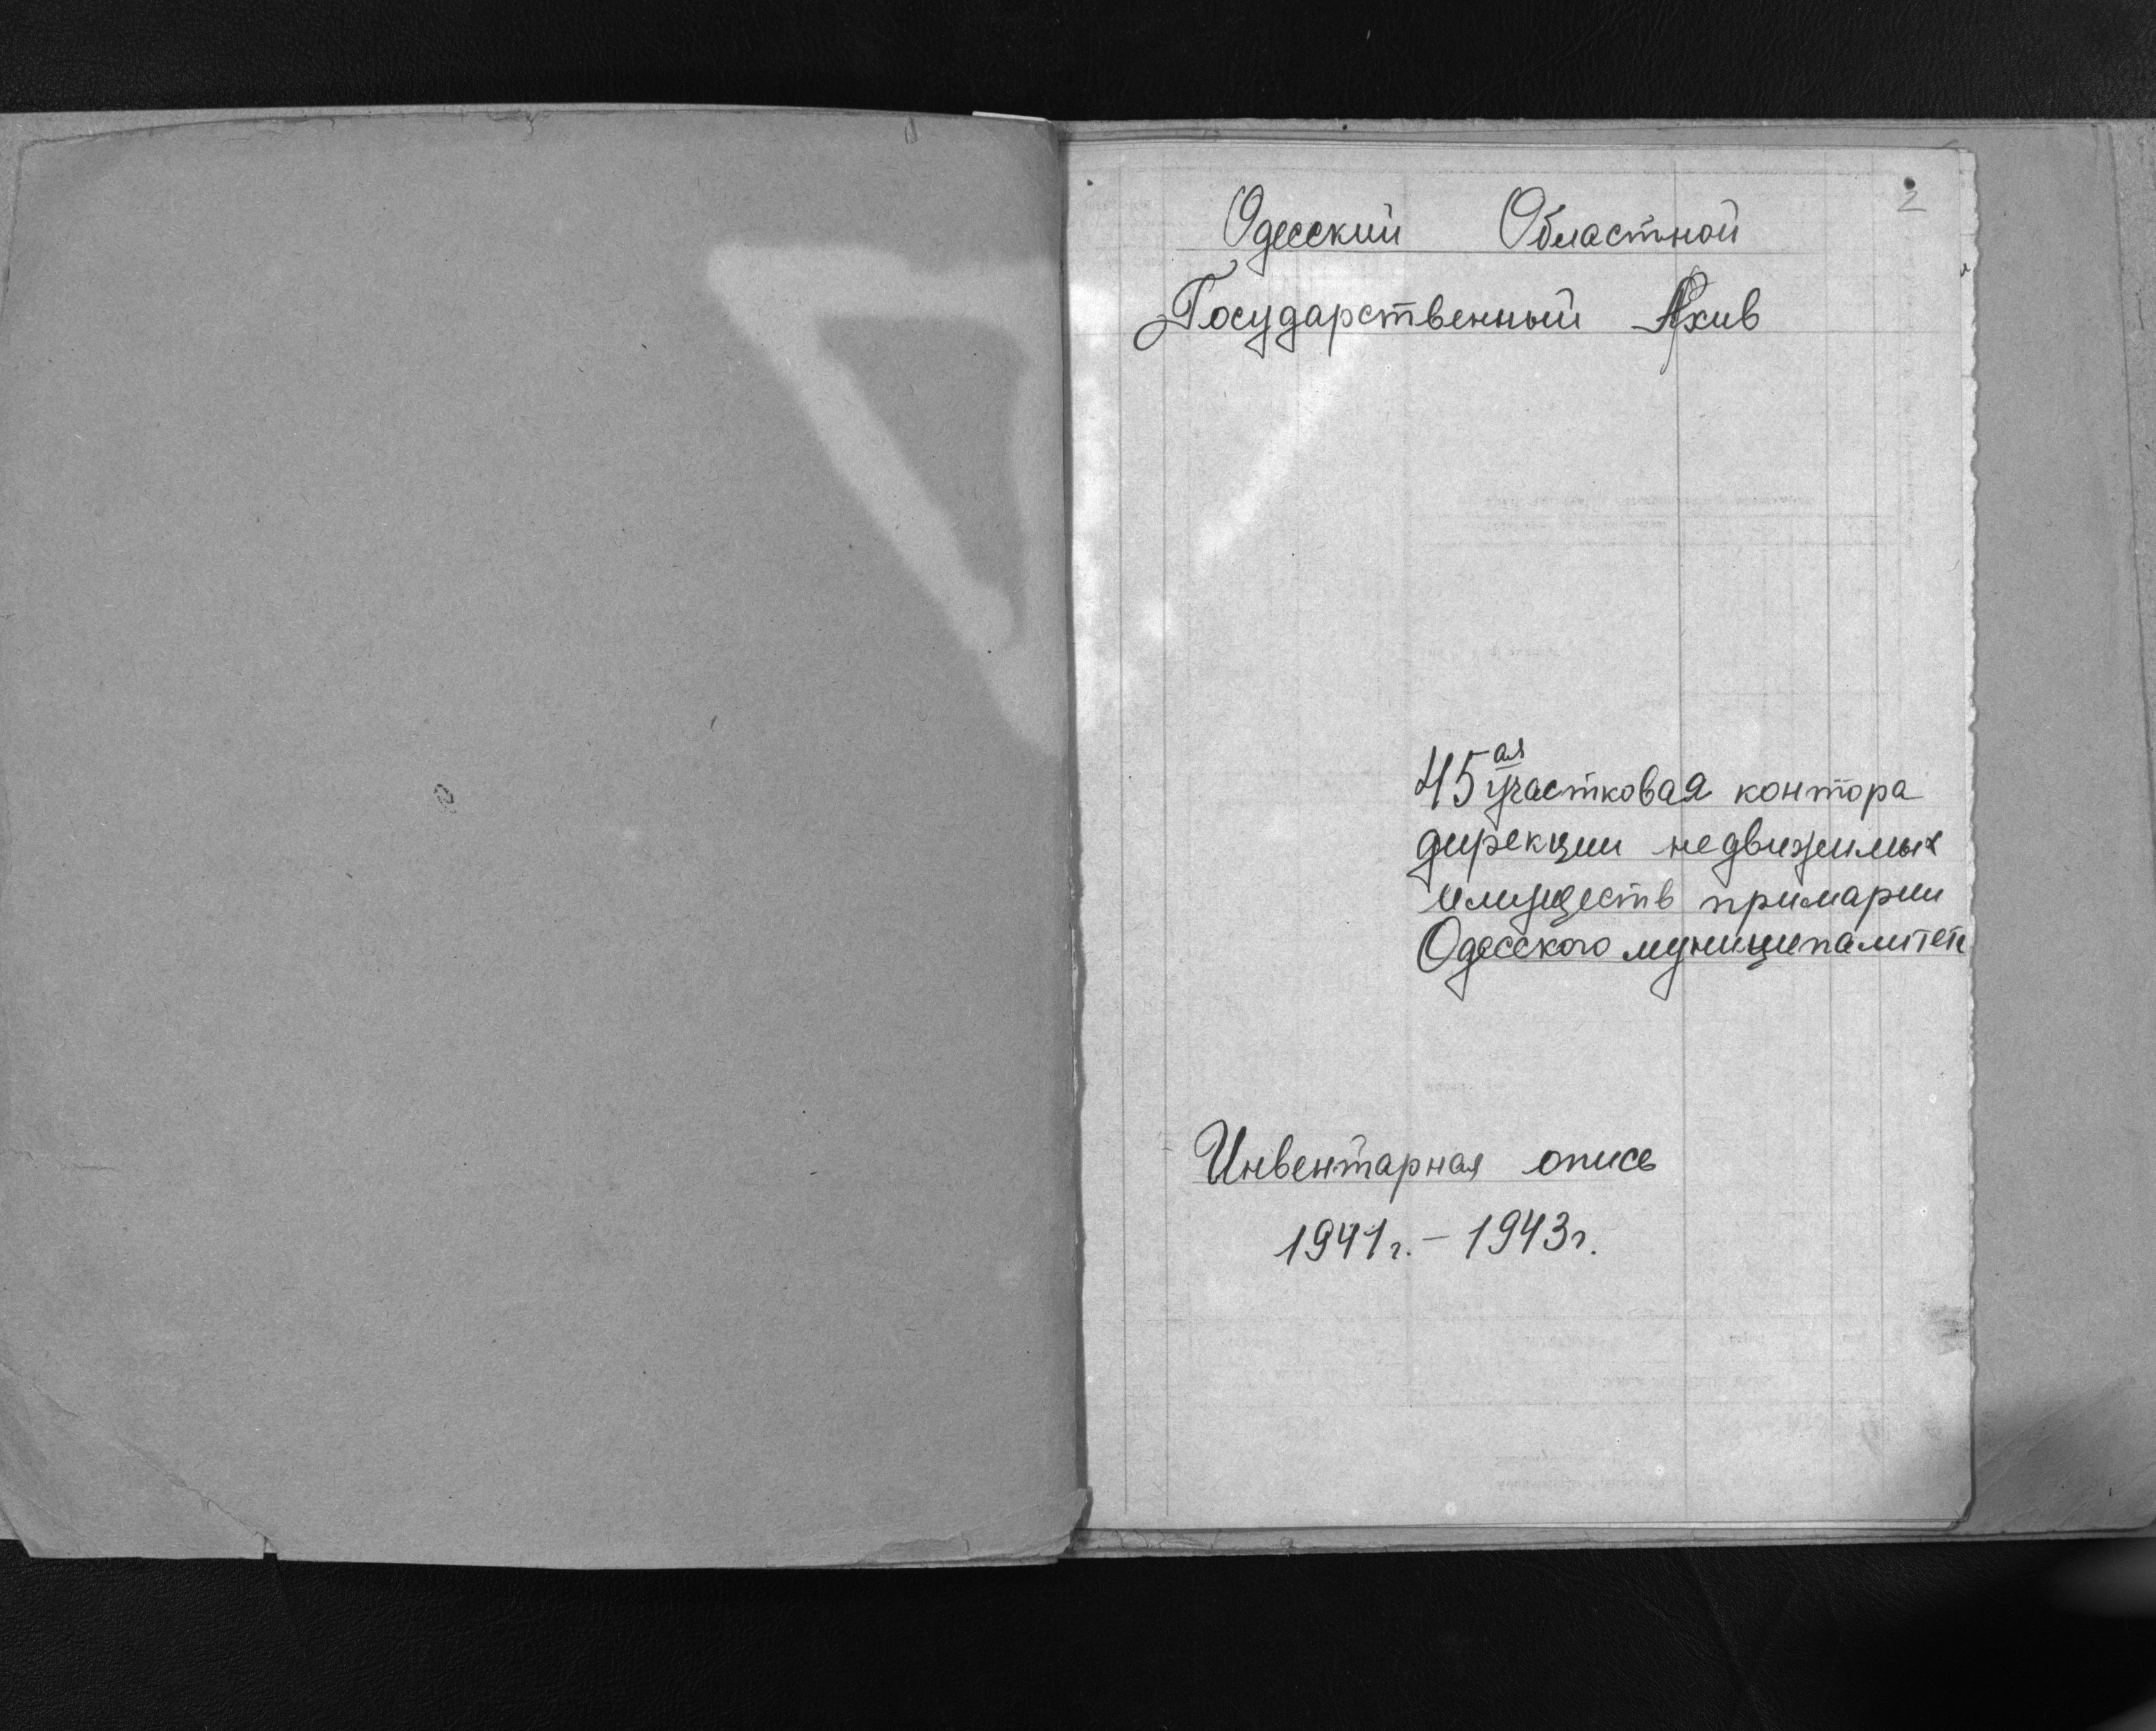 2
Одесский Областной
Государственный Архив
45ая участковая контора
дирекции недвижимых
имуществ примарии
Одесского муниципалитета
Инвентарная опись
1941г. - 1943г.